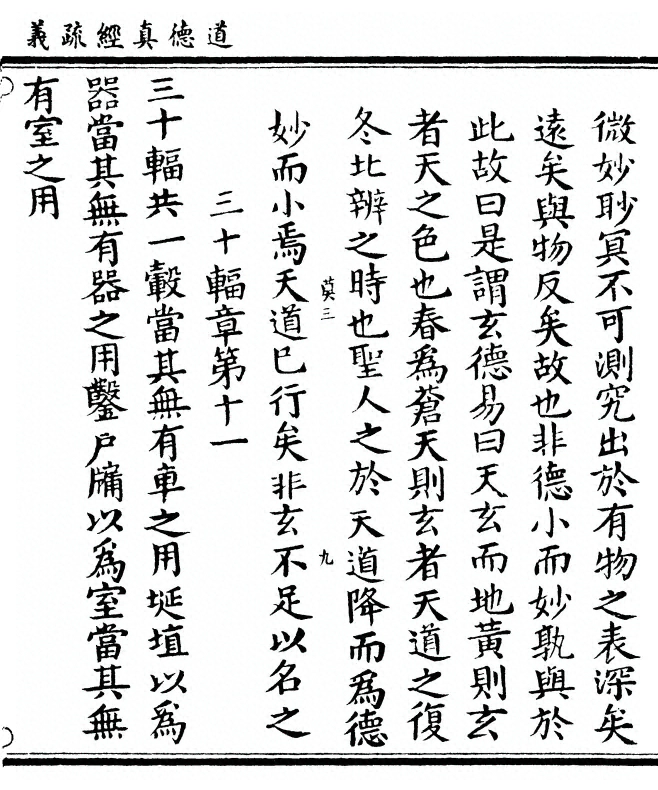 道德真經疏義
微妙眇冥不可測究出於有物之表深矣
遠矣與物反矣故也非德小而妙孰與於
此故曰是謂玄德易曰天玄而地黃則玄
者天之色也春為蒼天則玄者天道之復
冬北辨之時也聖人之於天道降而為德
莫三
九
妙而小焉天道已行矣非玄不足以名之
三十輻章第十一
三十輻共一轂當其無有車之用埏埴以為
器當其無有器之用鑿戶牖以為室當其無
有室之用